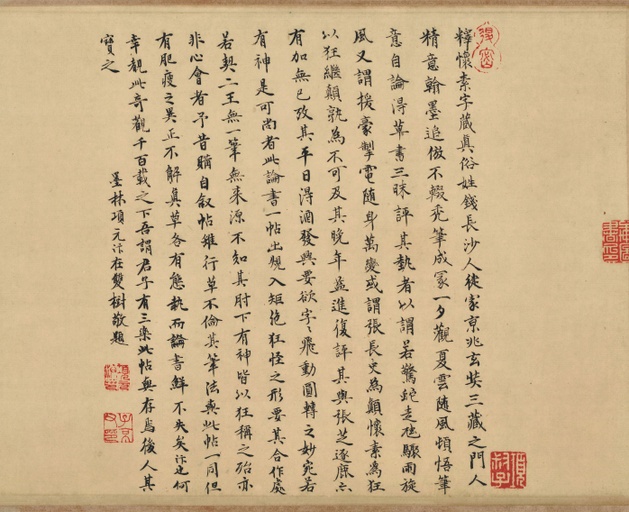 釋懷素字藏真俗姓錢長沙人徙家京兆玄奘三藏之門人
精意翰墨追倣不輟禿筆成冢一夕觀夏雲隨風頓悟筆
意自論得草書三昧評其執者以謂若驚蛇走虺驟雨旋
風又謂援豪掣電隨身萬變或謂張長史為顛懷素為狂
以狂繼顛孰為不可及其晚年益進復評其與張芝逐鹿
有加無已攷其平日得酒發興要欲字〻飛動圓轉之妙宛若
有神是可尚者此論書一帖出規入矩絕狂怪之形要其合作處
若契二王無一筆無來源不知其肘下有神皆以狂稱之殆亦
非心會者予昔購自叙帖雖行草不倫其筆法與此帖一同但
有肥瘦之異正不解真草各有態執而論書鮮不失矣汴也何
幸親此奇觀千百載之下吾謂君子有三樂此帖與存焉後人其
寶之
墨林項元汴在雙樹敬題